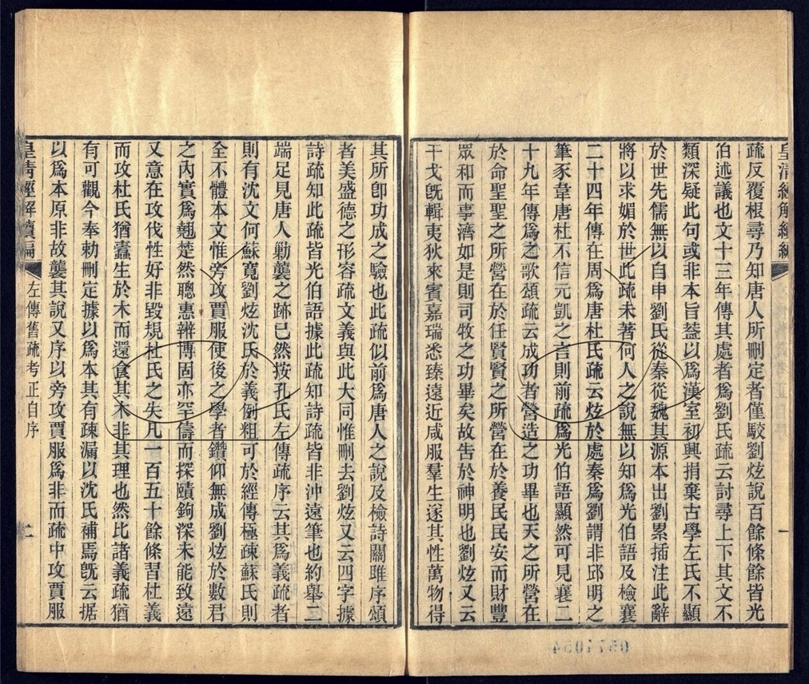 皇清經解續編
疏反覆根尋乃知唐人所刪定者僅駮劉炫說百餘條餘皆光
伯述議也文十三年傳其處者爲劉氏疏云討尋上下其文不
類深疑此句或非本旨葢以爲漢室初興捐棄古學左氏不顯
於世先儒無以自申劉氏從秦從魏其源本出劉累插注此辭
將以求媚於世此疏未著何人之說無以知爲光伯語及檢襄
二十四年傳在周爲唐杜氏疏云炫於處秦爲劉謂非邱明之
筆豕韋唐杜不信元凱之言則前疏爲光伯語顯然可見襄二
十九年傳爲之歌頌疏云成功者營造之功畢也天之所營在
於命聖聖之所營在於任賢賢之所營在於養民民安而財豐
眾和而事濟如是則司牧之功畢矣故告於神明也劉炫又云
干戈旣輯夷狄來賓嘉瑞悉臻遠近咸服羣生遂其性萬物得
其所卽功成之驗也此疏似前爲唐人之說及檢詩關雎序頌
者美盛德之形容疏文義與此大同惟刪去劉炫又云四字據
詩疏知此疏皆光伯語據此疏知詩疏皆非沖遠筆也約舉二
端足見唐人勦襲之跡已然按孔氏左傳疏序云其爲義疏者
則有沈文何蘇寬劉炫沈氏於義例粗可於經傳極疎蘇氏則
全不體本文惟旁攻賈服使後之學者鑽仰無成劉炫於數君
之內實爲翹楚然聰惠辨博固亦罕儔而探賾鉤深未能致遠
又意在攻伐性好非毀規杜氏之失凡一百五十餘條習杜義
而攻杜氏猶蠹生於木而還食其木非其理也然比諸義疏猶
有可觀今奉勅刪定據以爲本其有疎漏以沈氏補焉旣云據
以爲本原非故襲其說又序以旁攻賈服爲非而疏中攻賈服
皇清經解續編
左傳舊疏考正自序
二